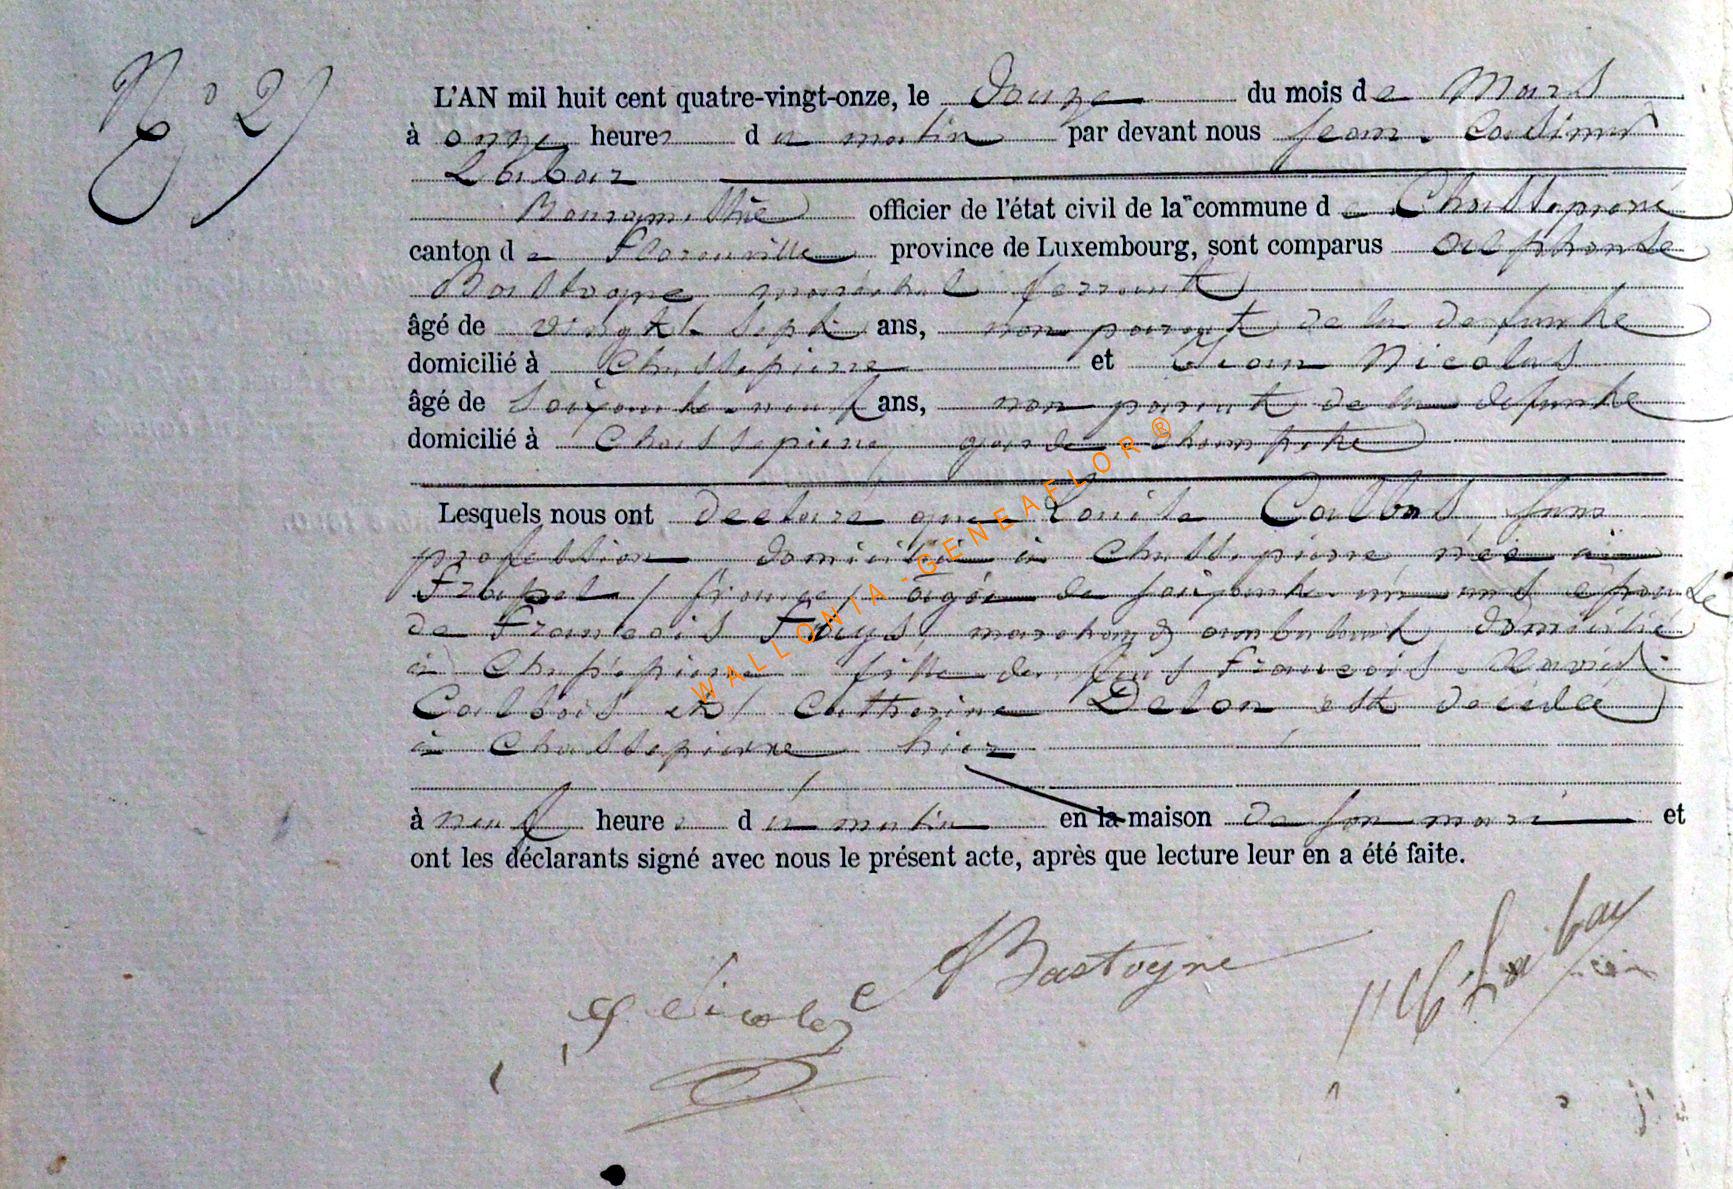 N° 2
L'AN mil huit cent quatre-vingt-onze, le Douze du mois de Mars
à onze heures du matin par devant nous Jean-Casimir
Labbaz
Bourgmestre officier de l'état civil de la commune de Chassepierre
canton de Florenville province de Luxembourg, sont comparus Alphonse
Bastogne, maréchal ferrant
âgé de vingt-sept ans, non parent de la défunte
domicilié à Chassepierre et Jean Nicolas
âgé de soixante-neuf ans, non parent de la défunte
domicilié à Chassepierre, garde champêtre
Lesquels nous ont déclaré que Louise Collbas, sans
profession domiciliée à Chassepierre, née à
(france) âgée de soixante-un ans épouse
de François Feuys, marchand ambulant, domicilié
à Chassepierre fille des feus François-Xavier
Colbois et Catherine Delon est décédée
à Chassepierre hier
à neuf heures du matin en la maison de son mari et
ont les déclarants signé avec nous le présent acte, après que lecture leur en a été faite.
Nicolas Bastogne
WALLONIA-GENEAFLOR®